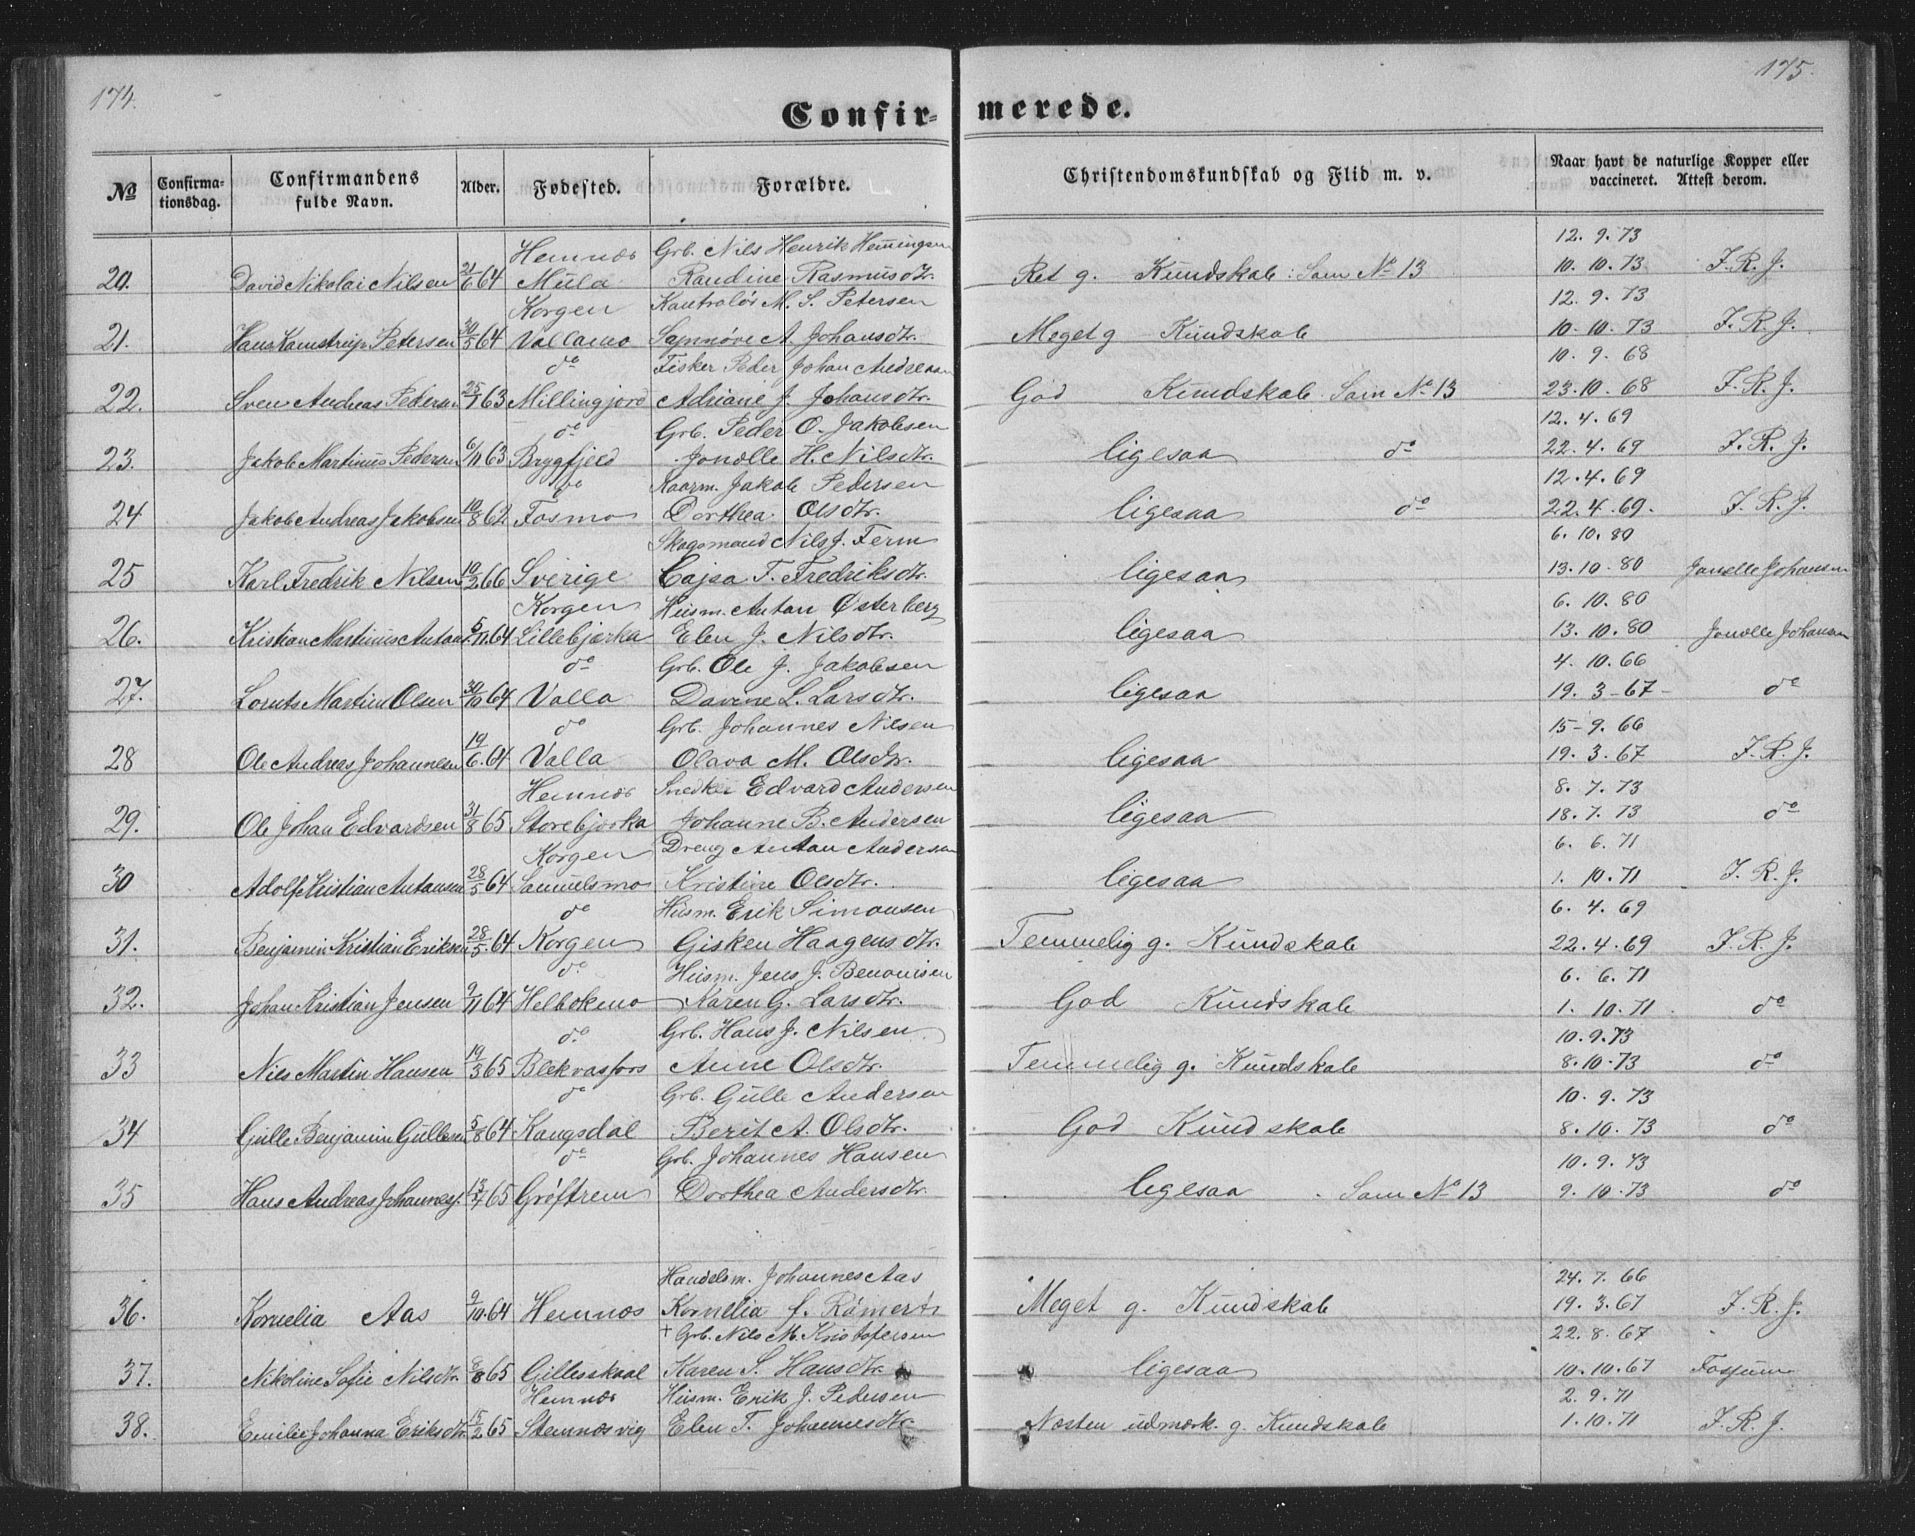 174.
175.
Confir- merede.
№ Confirma-tionsdag. Confirmandens fulde Navn. Alder. Fødested. Forældre. Christendomskundskab og Flid m. v. Naar havt de naturlige Kopper eller vaccineret. Attest derom.
Hemnæs Grb. Nils Henrik Hemingsen 12. 9. 73
20. David Nikolai Nilsen 21/6 64 Mula Randine Rasmusdtr. Ret g. Kundskab: Som № 13 10. 10. 73 J. R. J.
Korgen Kontrolør M. S. Petersen 12. 9. 73
21. Hans Kamstrup Petersen 30/5 64 Vallamo Synnøve A. Johansdtr. Meget g Kundskab 10. 10. 73 J. R. J.
do Fisker Peder Johan Andreasen 10. 9. 68
22. Sven Andreas Pedersen 25/7 63 Millingjord Adriane J. Johansdtr. God Kundskab. Som № 13 23. 10. 68 J. R. J.
do Grb. Peder O. Jakobsen 12. 4. 69
23. Jakob Martinus Pedersen 6/11 63 Brygfjeld Jonelle H. Nilsdtr. ligesaa do 22. 4. 69 J. R. J.
do Kaarm. Jakob Pedersen 12. 4. 69
24 Jakob Andreas Jakobsen 10/8 62 Fosmo Dorthea Olsdtr. ligesaa do 22. 4. 69. J. R. J.
Skogsmand Nils J. Ferm 6. 10. 80
25 Karl Fredrik Nilsen 10/2 66 Sverige Cajsa F. Fredriksdtr. ligesaa 13. 10. 80 Jonelle Johansen
Korgen Husm. Anton Østerberg 6. 10. 80
26. Kristian Martinus Anton. 5/11 64 Lillebjerka Elen J. Nilsdtr. ligesaa 13. 10. 80 Jonelle Johansen
do Grb. Ole J. Jakobsen 4. 10. 66
27. Lorents Martin Olsen 30/10 64 Valla Davine L. Larsdtr. ligesaa 19. 3 - 67 - do
do Grb. Johannes Nilsen 15 - 9. 66
28 Ole Andreas Johannesen 19/6 64 Valla Olava M. Olsdtr. ligesaa 19. 3. 67 J. R. J.
Hemnæs Snedker Edvard Andersen 8. 7. 73
29. Ole Johan Edvardsen 31/8 65 Storebjerka Johanne B. Andersen ligesaa 18. 7. 73 do
Korgen Dreng Anton Andersen 6. 6. 71
30 Adolf Kristian Antonsen 28/5 64 Samuelsmo Kristine Olsdtr. ligesaa 1. 10. 71 J. R. J.
do Husm. Erik Simonsen 6. 4. 69
31. Benjamin Kristian Eriksen 28/5 64 Korgen Gisken Haagensdtr. Temmelig g. Kundskab 22. 4. 69 J. R. J.
do Husm. Jens J. Benonisen 6. 6. 71
32. Johan Kristian Jensen 9/11 64 Helbokmo Karen G. Larsdtr. God Kundskab 1. 10. 71 do
do Grb. Hans J. Nilsen 10. 9. 73
33 Nils Martin Hansen 19/3 65 Blekvasfors Anne Olsdtr. Temmelig g. Kundskab 8. 10. 73 do
do Grb. Gulle Andersen 10. 9. 73
34 Gulle Benjamin Gullesen 5/8 64 Kangsdal Berit A. Olsdtr. God Kundskab 8. 10. 73 do
do Grb. Johannes Hansen 10. 9. 73
35 Hans Andreas Johannes. 13/7 65 Grøftrem Dorthea Andersdtr. ligesaa . Som № 13 9. 10. 73 do
Handelsm. Johannes Aas 24. 7. 66
36. Kornelia Aas 9/10 64 Hemnæs Kornelia f. Rømerør Meget g. Kundskab 19. 3. 67 J. R. J.
+ Grb. Nils M. Kristofersen 22. 8. 67
37. Nikoline Sofie Nilsdtr. 2/8 65 Gilleskaal Karen S. Hansdtr. ligesaa 10. 10. 67
Hemnæs Husm. Erik J. Pedersen 2. 9. 71
38. Emilie Johanna Eriksdtr. 15/2 65 Stemnesvig Elen T. Johannesdtr. Næsten udmærk. g. Kundskab 1. 10. 71 J. R. J.